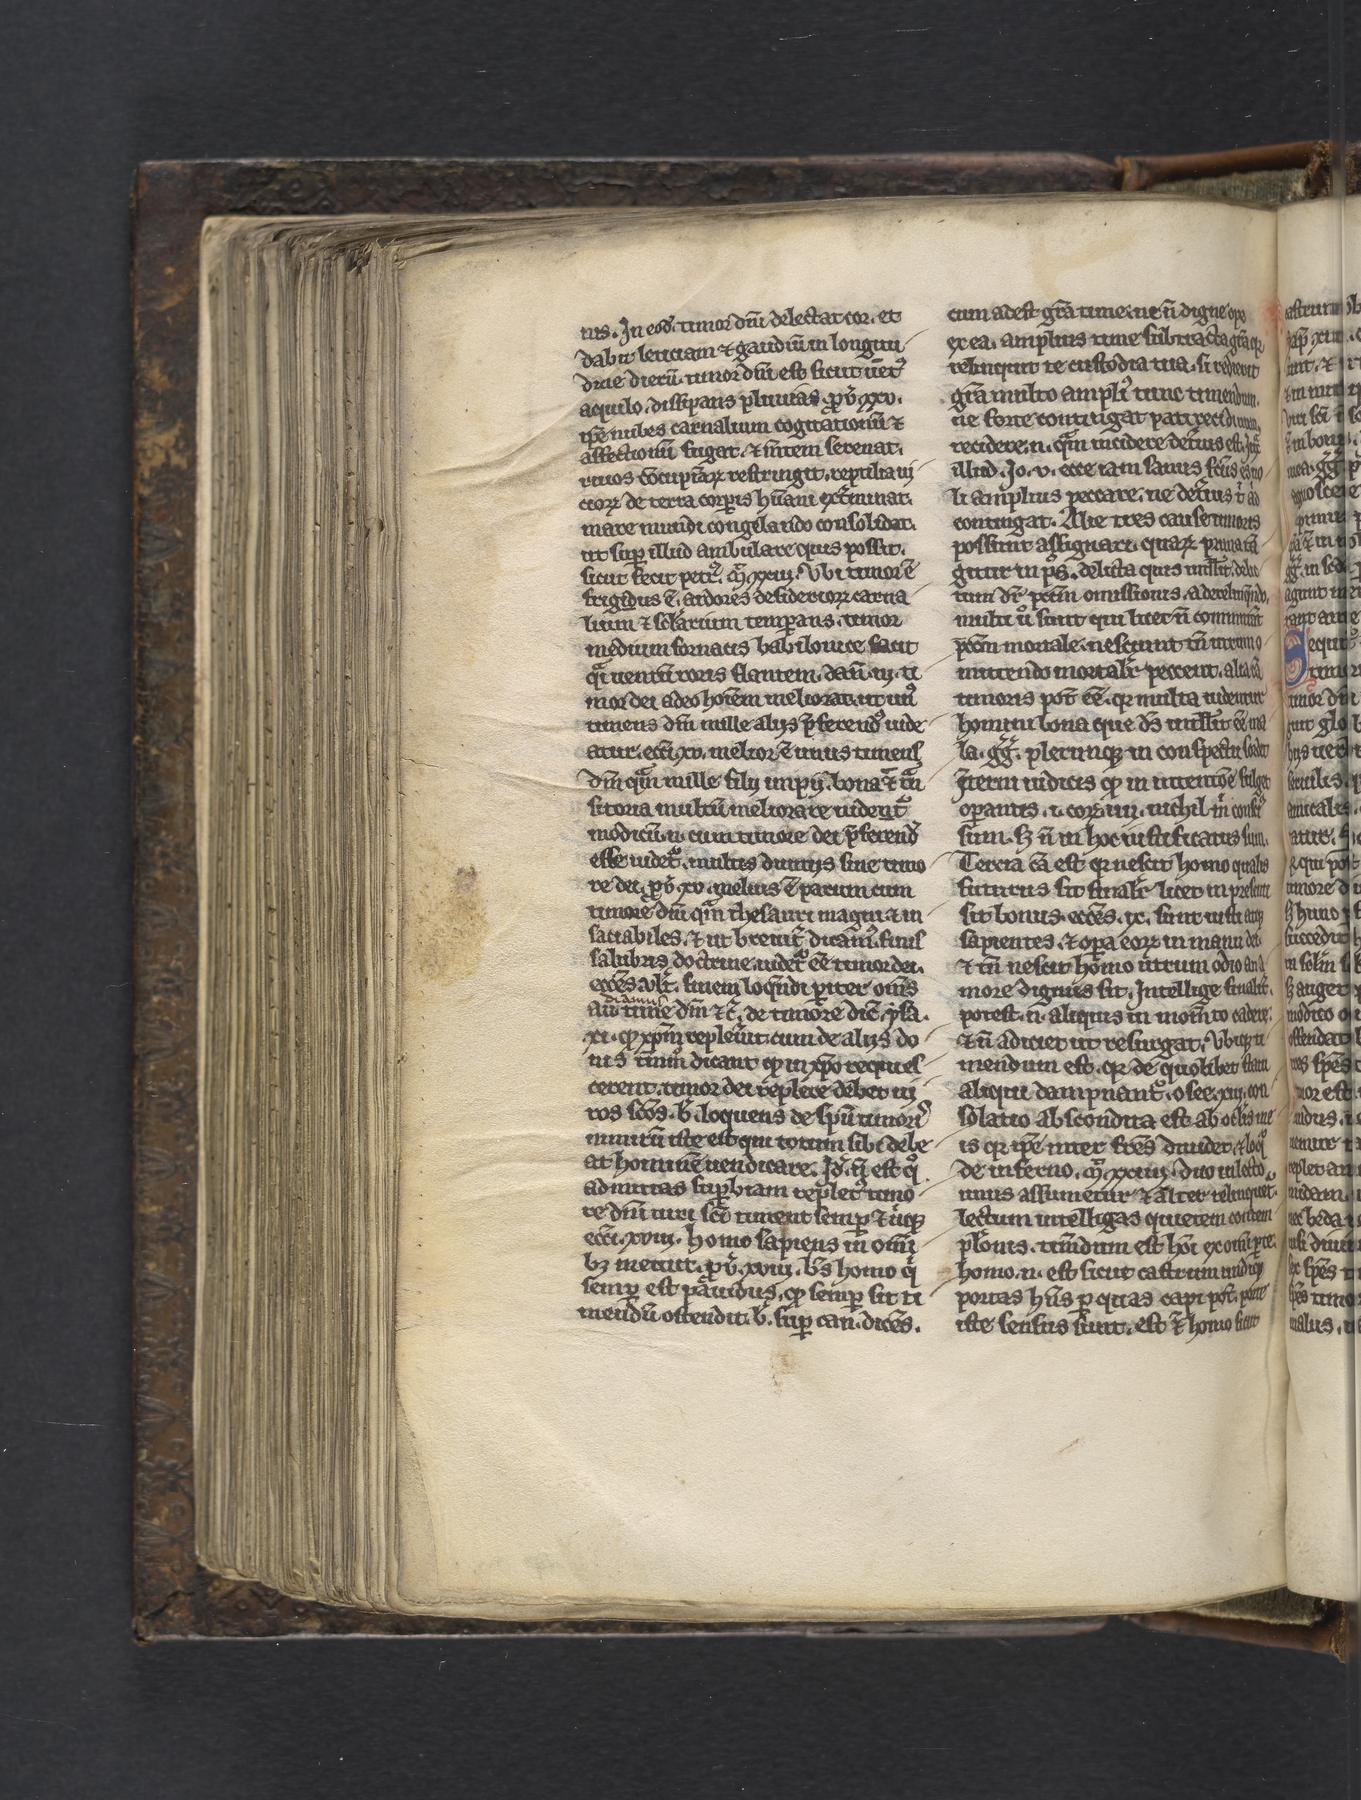 nis. In eod. timor dn̄i delectat cor. et
dabit leticiam ⁊ gaudiū in longitu
dine dierū. timor dn̄i est sicut uēt᷒
aquilo. dissipans pluuias. ꝓv̄. xxv.
ip̄e nubes carnalium cogitationū ⁊
affectionū fugat. ⁊ m̄tem serenat.
riuos ꝯcupīarꝝ restringit. reptilia ui
ciorꝝ de terra corꝑis hūani exͭminat.
mare mundi congelando consolidat.
ut suꝑ illud ambulare quis possit.
sicut fecit petr᷒. m̄. xxiiii. Vbi timor ē
frigidus ē. ardores desideriorꝝ carna
lium ⁊ sclārium temꝑans. timor
medium fornacis babilonice facit
q̄i uentū roris flantem. dan̄. iii. ti
mor dei adeo hoīem meliorat. ut un᷒
timens dm̄ mille alijs p̄ferend᷒ uide
atur. ecci. xv. melior ē unus timens
dm̄ qᷓm mille filij impij. bona ⁊ tᷓn
sitoria multū meliorare uident᷑
modicū. n. cum timore dei p̄ferend᷒
esse uidet᷑. multis diuitijs sine timo
re dei. ꝓv̄. xv. melius ē parum cum
timore dn̄i qᷓm thesauri magni ⁊ in
satiabiles. ⁊ ut breuit̾ dicam᷒. finis
salubris doctrine. uidet᷑ eē timor dei.
ecces. ult̾. finem loq̄ndi ꝑiter om̄s
audiamus time dm̄ ⁊ c̾. de timore dic̄. ysa.
xi. ꝙ xp̄m repleūit. cum de alijs do
nis tm̄mͦ dicant ꝙ in xp̄o requies
cerent. timor dei replere debet ui
ros scōs. b̾. loquens de sp̄u timoris
mirū iste est qui totum sibi debe
at hominē uendicare. Id̾. n̄ est qͦ
admittas suꝑbiam replet᷒ timo
re dn̄i. uiri scī timent semꝑ ⁊ ubiqꝫ
ecci. xviii. homo sapiens in om̄i
bꝫ metuit. ꝓv̄. xxviii. b̄s homo qͥ
semꝑ est pauidus. ꝙ semꝑ sit ti
mendū ostendit. b̾. suꝑ can. dicēs.
cum adest grā time. ne n̄ digne opē
ex ea. amplius time subtracta grā qꝛ
relinquit te custodia tua. si redierit
grā multo ampli᷒ tunc timendum.
ne forte contingat pati recidiuum.
recidere. n. qᷓm incidere det̾ius est. Iux̄
illud. Jo. v. ecce iam sanus fcūs es no
li amplius peccare. ne det̾ius t̾ aͥd
contingat. Alie tres cause timoris
possunt assignari. quarꝝ prima tā
gitur in ps̄. delicta quis intelligit. delic
tum dr̄ pctm̄ omissionis. a derelinq̄ndo.
multi ū sunt qui licet n̄ committāt
pctm̄ mortale. nesciunt tn̄ utrum o
mittendo mortalr̄ peccent. alia cā
timoris pot̄ eē. qꝛ multa uidentur
homini bona que ds̄ intelligit eē ma
la. gg̾. plerumqꝫ in conspectu sordet
int̾ni iudicis ꝙ in intentiōe fulget
oꝑantis. i. corꝝ. iiii. nichil m̾ consci᷒
sum. sꝫ n̄ in hoc iustificatus sum.
Tercia cā est qꝛ nescit homo qualis
futurus sit finalr̄ licet in presenti
sit bonus. ecces. ix. sunt iusti atqꝫ
sapientes. ⁊ oꝑa eorꝝ in manu dei.
⁊ tn̄ nescit homo utrum odio an a
more dignus sit. Intellige finalit̾.
potest. n. aliquis in mom̄to cadere.
⁊ n̄ adiciet ut resurgat. Vbiqꝫ ti
mendum est. qꝛ de quolibet statu
aliqui dampnant᷑. osee. xiii. con
solatio abscondita est ab oculis me
is qꝛ ip̄e inter frēs diuidet. ⁊ loqͥ᷑
de inferno. m̄. xxiiii. duo in lecto.
unus assumetur ⁊ alter relinquet᷑.
lectum intelligas quietem contem
pl̄onis. timēdum est hōi ex omi ꝑte.
homo. n. est sicut castrum undiqꝫ
portas hn̄s ꝑ quas capi pot̄. porte
iste sensus sunt. est ⁊ homo sicut